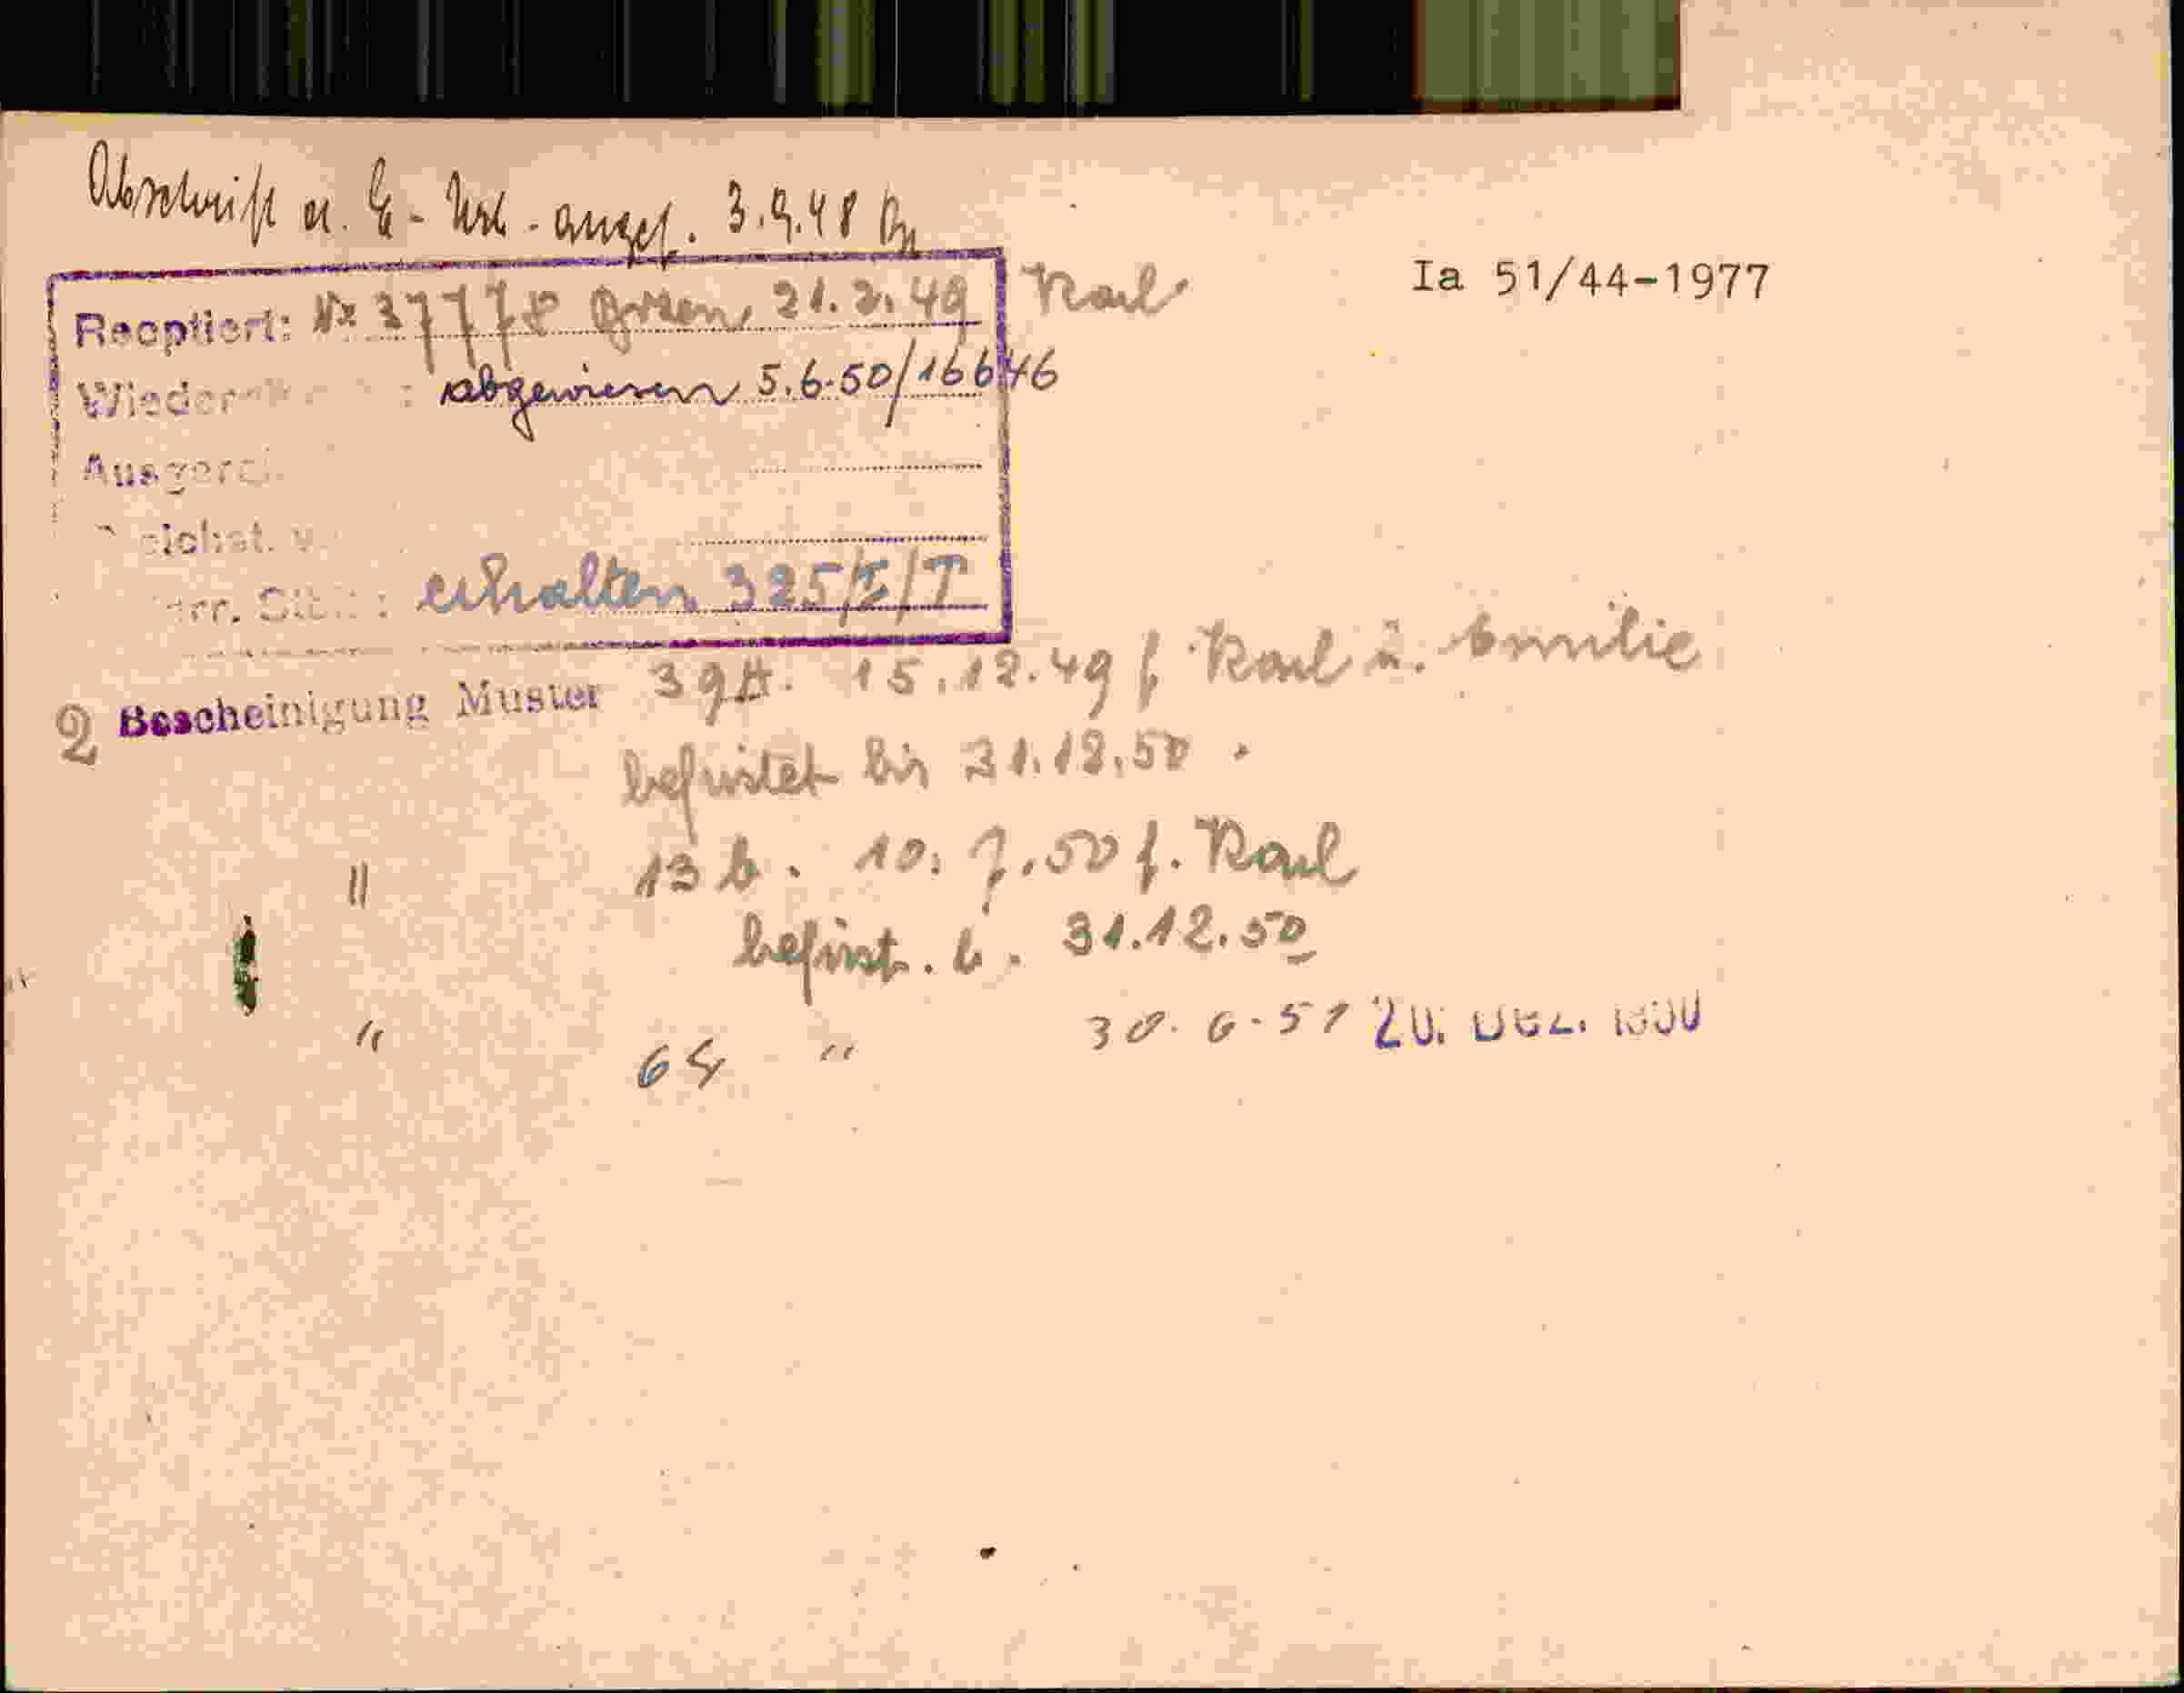 Abschrift u. E-Urk. angef. 3.9.48
Ia 51/44-1977
Reoptiert: Nr 37778 Bozen, 21.2.49 Karl
abgewiesen 5.6.50/16646
erhalten 325/I/T
2 Bescheinigung Muster 39A. 15.12.49 f. Karl u. Emilie
befristet bis 31.12.50.
" 13 b. 10.7.50 f. Karl
befrist. b. 31.12.50
" 64 " 30.6.51 20. DEZ. 1950